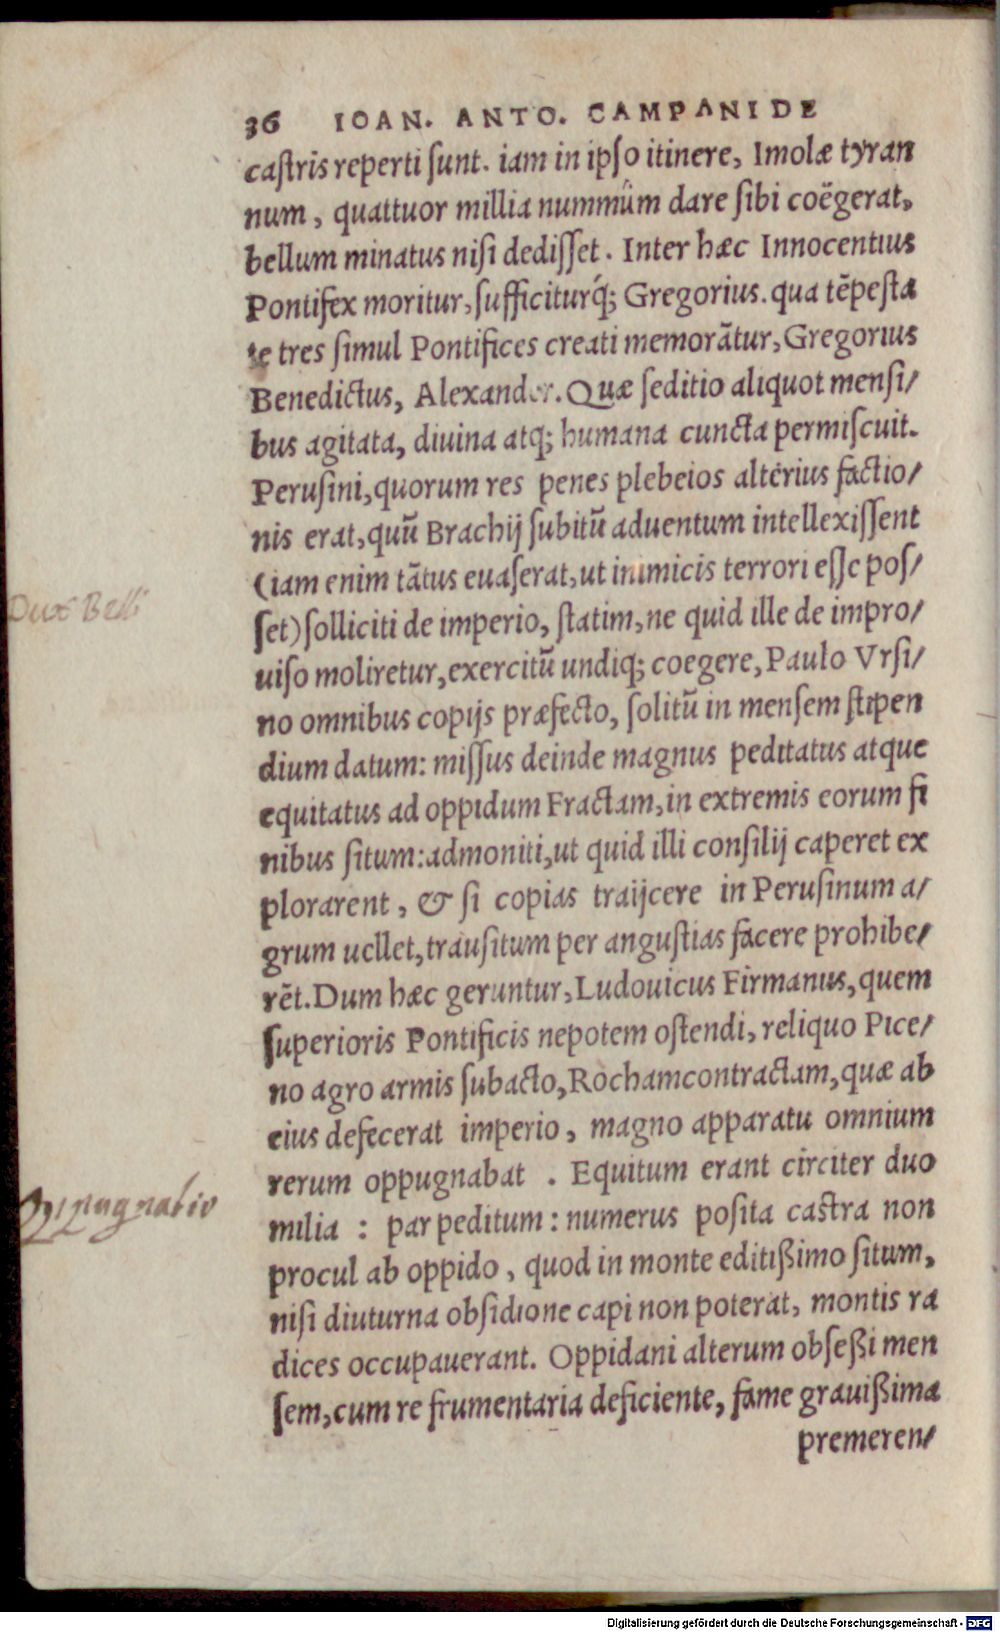 36 IOAN. ANTO. CAMPANI DE
castris reperti sunt. iam in ipso itinere, Imolæ tyran
num, quattuor millia nummûm dare sibi coëgerat,
bellum minatus nisi dedisset. Inter hæc Innocentius
Pontifex moritur, sufficiturq́; Gregorius. qua tẽpesta
te tres simul Pontifices creati memorãtur, Gregorius
Benedictus, Alexander. Quæ seditio aliquot mensi/
bus agitata, diuina atq; humana cuncta permiscuit.
Perusini, quorum res penes plebeios alterius factio/
nis erat, quũ Brachij subitũ aduentum intellexissent
(iam enim tãtus euaserat, ut inimicis terrori esse pos/
set) solliciti de imperio, statim, ne quid ille de impro/
uiso moliretur, exercitũ undiq; coegere, Paulo Vrsi/
no omnibus copijs præfecto, solitũ in mensem stipen
dium datum: missus deinde magnus peditatus atque
equitatus ad oppidum Fractam, in extremis eorum fi
nibus situm: admoniti, ut quid illi consilij caperet ex
plorarent, & si copias traijcere in Perusinum a/
grum uellet, trausitum per angustias facere prohibe/
rẽt. Dum hæc geruntur, Ludouicus Firmanus, quem
superioris Pontificis nepotem ostendi, reliquo Pice/
no agro armis subacto, Rochamcontractam, quæ ab
eius defecerat imperio, magno apparatu omnium
rerum oppugnabat . Equitum erant circiter duo
milia : par peditum : numerus posita castra non
procul ab oppido, quod in monte editißimo situm,
nisi diuturna obsidione capi non poterat, montis ra
dices occupauerant. Oppidani alterum obseßi men
sem, cum re frumentaria deficiente, fame grauißima
premeren/
Dux Belli
Oppugnatio
Digitalisierung gefördert durch die Deutsche Forschungsgemeinschaft - DFG